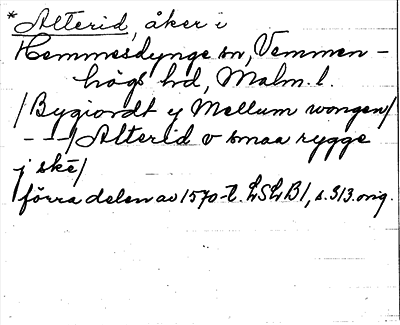 * Alterid, åker i
Hemmesdynge sn, Vemmen-
högs hd, Malm. l.
/Bygiordt y Mellum wongen/
- - -/ Alterid v smaa rygge
j ske/
förra delen av 1570-t. LSLB1, s. 313. orig.